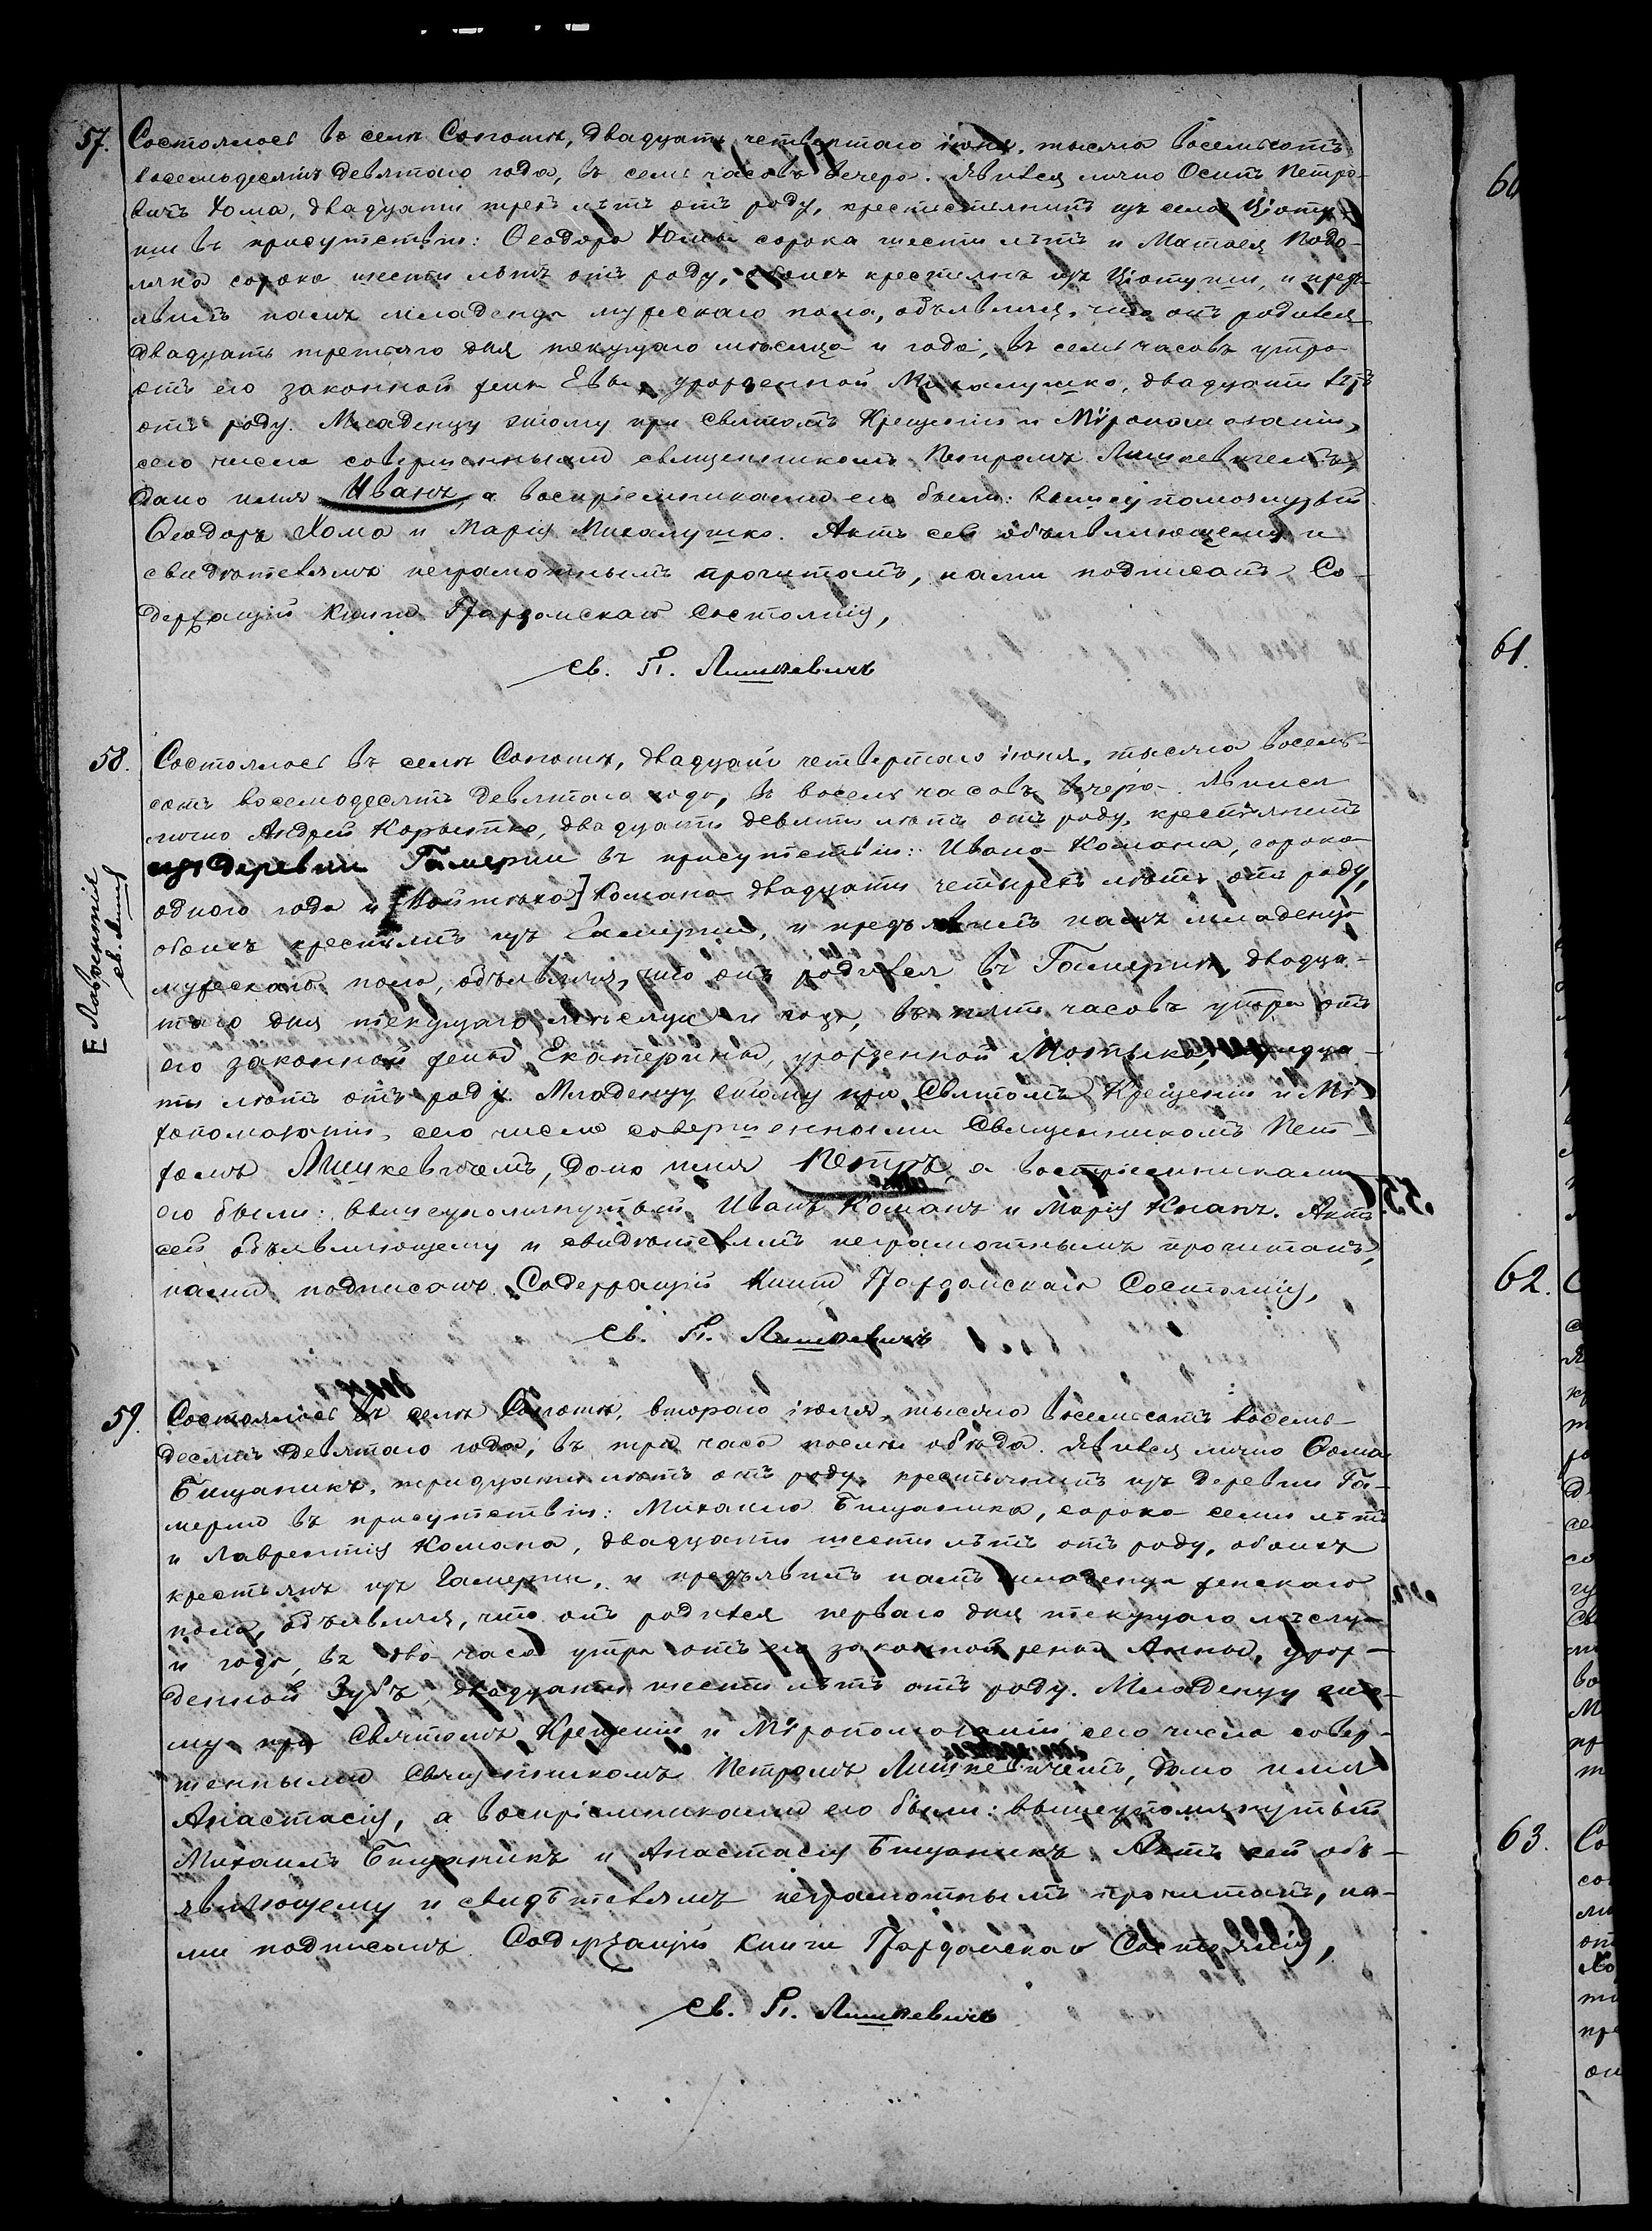 57. Состоялось въ селѣ Сопотѣ, двадцать четвертаго іюня, тысяча восемьсотъ
восемьдесятъ девятаго года, въ семь часовъ вечера. Явился лично Осипъ Петро-
вичъ Хома, двадцати трехъ лѣтъ отъ роду, крестьянинъ изъ села Ціоту-
ши въ присутствіи: Ѳеодора Хомы сорока шести лѣтъ и Матѳея Подо-
ляка сорока шести лѣтъ отъ роду, обоихъ крестьянъ изъ Ціотуши, и предъ-
явилъ намъ младенца мужескаго пола, объявляя, что онъ родился
двадцать третьяго дня текущаго мѣсяца и года, въ семь часовъ утра
отъ его законной жены Евы, урожденной Михалушко, двадцати лѣтъ
отъ роду. Младенцу этому при Святомъ Крещеніи и Мѵропомазаніи,
сего числа совершенными священникомъ Петромъ Лишкевичемъ,
дано имя Иванъ, а воспріемниками его были: вышеупомянутый
Ѳеодоръ Хома и Марія Михалушко. Актъ сей объявляющему и
свидѣтелямъ неграмотнымъ прочитанъ, нами подписанъ. Со-
держащій книги Гражданскаго Состоянія,
Св. П. Лишкевичъ
58. Состоялось въ селѣ Сопотѣ, двадцать четвертаго іюня, тысяча восемь-
сотъ восемьдесятъ девятаго года, въ восемь часовъ вечера. Явился
лично Андрей Корытко, двадцати девяти лѣтъ отъ роду, крестьянинъ
изъ деревни Гамерни въ присутствіи: Ивана Комана, сорока
одного года и [Войтѣха] Комана двадцати четырехъ лѣтъ отъ роду,
обоихъ крестьянъ изъ Гамерни, и предъявилъ намъ младенца
мужескаго пола, объявляя, что онъ родился въ Гамерни, двадца-
таго дня текущаго мѣсяца и года, въ пять часовъ утра отъ
его законной жены Екатерины, урожденной Мотыка, двадца-
ти лѣтъ отъ роду. Младенцу этому при Святомъ Крещеніи и Мѵ-
ропомазаніи, сего числа совершенными Священникомъ Пет-
ромъ Лишкевичемъ, дано имя Петръ, а воспріемниками
его были: вышеупомянутый Иванъ Команъ и Марія Кнапъ. Актъ
сей объявляющему и свидѣтелямъ неграмотнымъ прочитанъ,
нами подписанъ. Содержащій Книги Гражданскаго Состоянія,
Св. П. Лишкевичъ
Лаврентія
св. Лишк
59. Состоялось въ селѣ Сопотѣ, втораго іюля, тысяча восемьсотъ восемь-
десятъ девятаго года, въ три часа послѣ обѣда. Явился лично Ѳома
Бищаникъ, тридцати лѣтъ отъ роду, крестьянинъ изъ деревни Га-
мерни въ присутствіи: Михаила Бищаника, сорока семи лѣтъ
и Лаврентія Комана, двадцати шести лѣтъ отъ роду, обоихъ
крестьянъ изъ Гамерни, и предъявилъ намъ младенца женскаго
пола, объявляя, что онъ родился перваго дня текущаго мѣсяца
и года, въ два часа утра отъ его законной жены Анны, урож-
денной Зубъ, двадцати шести лѣтъ отъ роду. Младенцу это-
му при Святомъ Крещеніи и Мѵропомазаніи сего числа совер-
шенными Священникомъ Петромъ Лишкевичемъ, дано имя
Анастасія, а воспріемниками его были: вышеупомянутый
Михаилъ Бищаникъ и Анастасія Бищаникъ. Актъ сей объ-
являющему и свидѣтелямъ неграмотнымъ прочитанъ, на-
ми подписанъ. Содержащій Книги Гражданскаго Состоянія,
Св. П. Лишкевичъ
60
61.
62.
63.